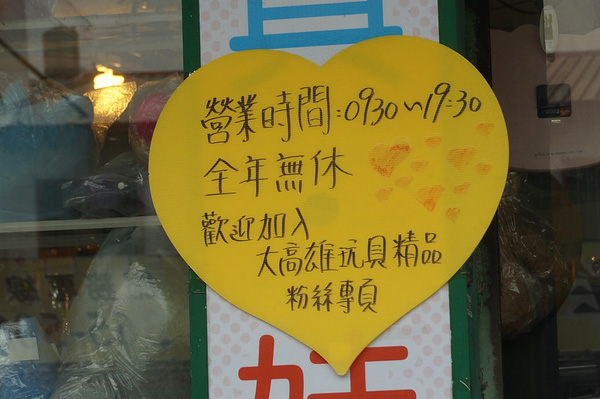 營業時間：0930~19:30
全年無休
歡迎加入
大高雄玩具精品
粉絲專頁